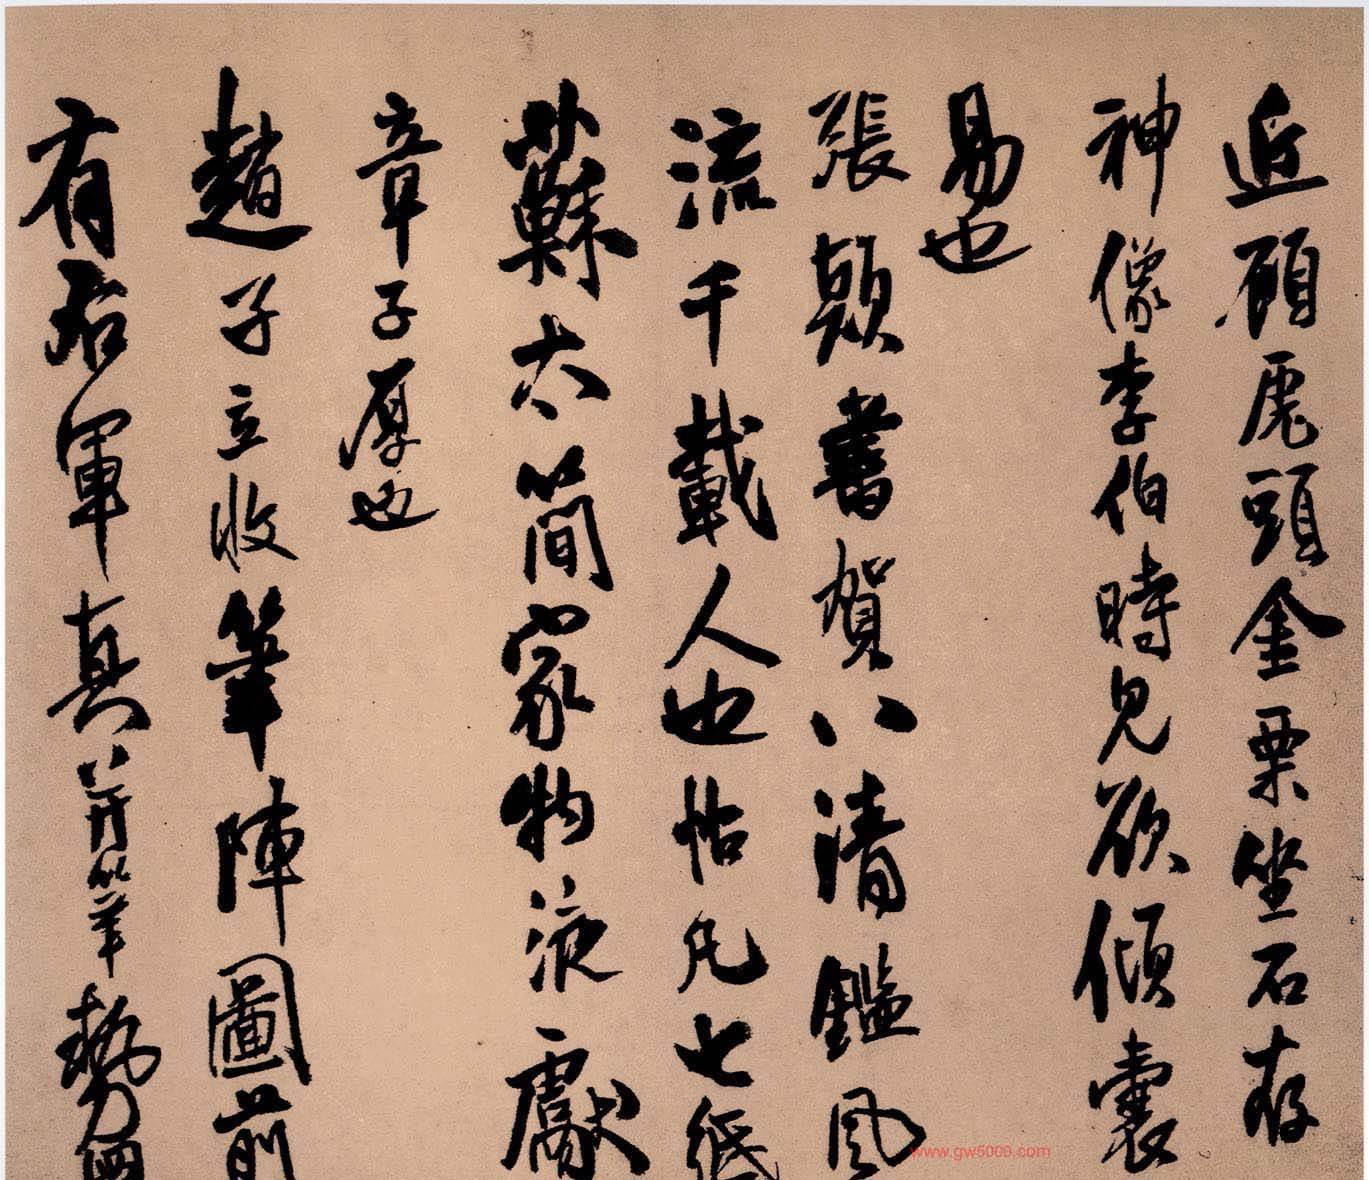 近顧虎頭金粟坐石存
神像李伯時見欲傾囊
易也
張顛書賀八清鑑風
流千載人也帖凡七紙
蘇太簡家物液獻
章子厚也
趙子立收筆陣圖前
有右軍真筆并筆勢
www.gw5000.com